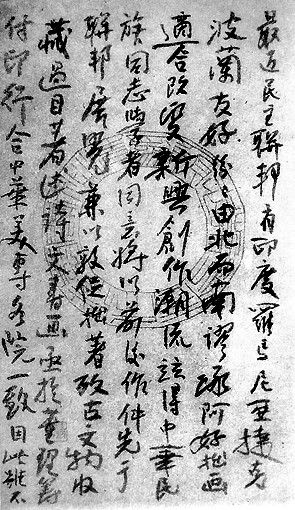 最近民主聯邦有印度羅馬尼亞捷克
波蘭友好後由北而南謬承阿好拙畫
適合改變新興創作潮流茲得中華民
族同志學者同意將以前後作件先于
聯邦展覽兼以敦促拙著攷古文物收
藏過目著述詩文書畫亟於董理籌
付印行合中華美專各院一致因此雖不